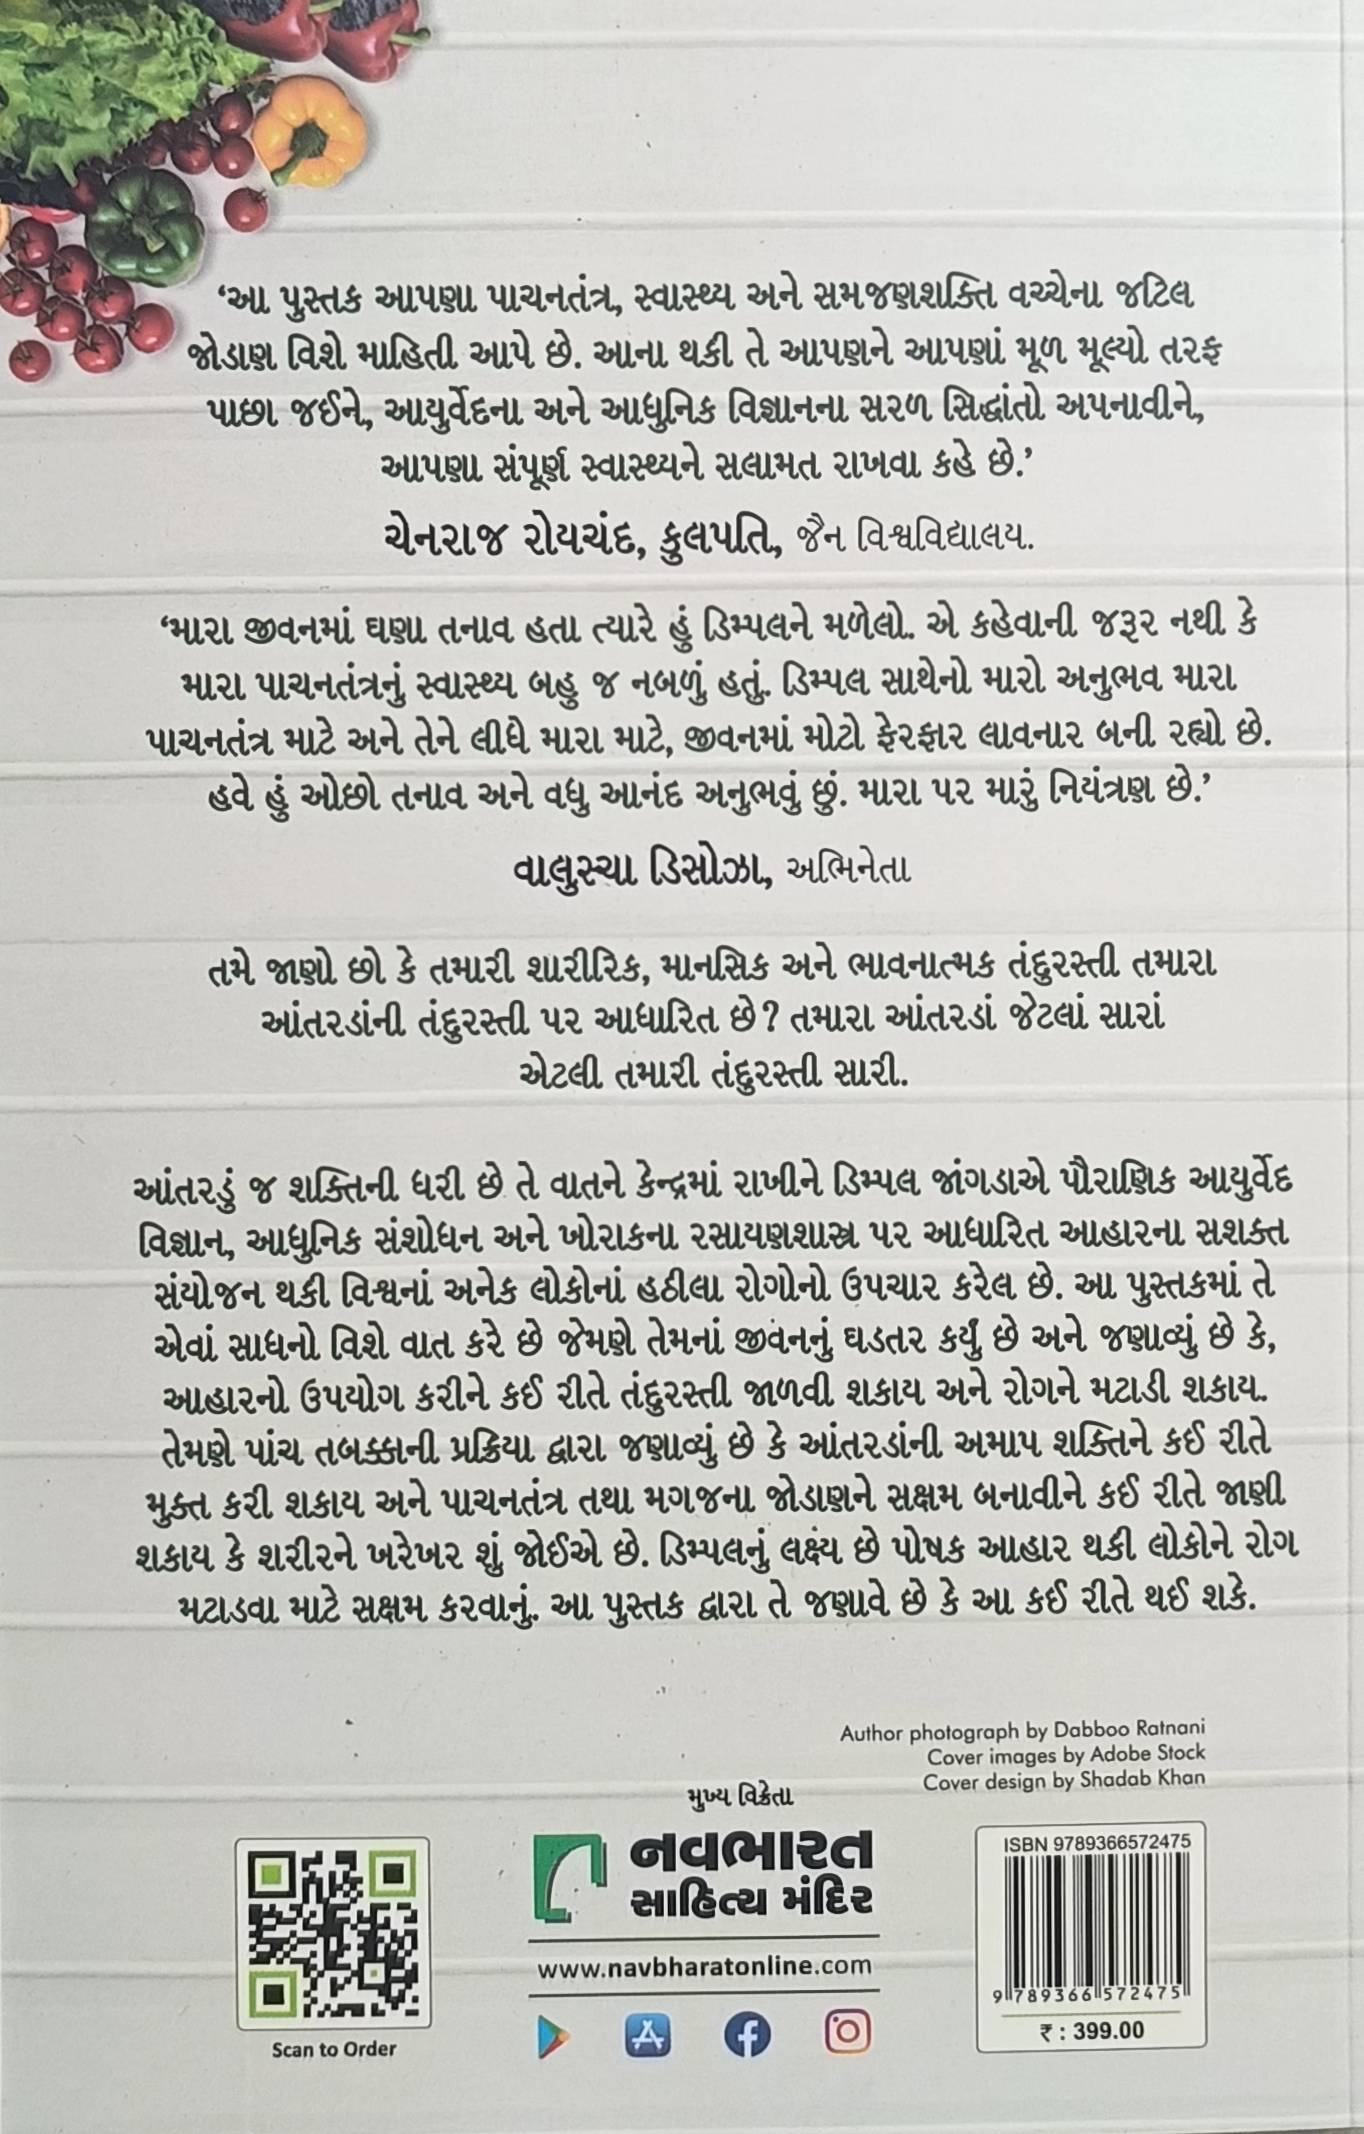 ‘આ પુસ્તક આપણા પાચનતંત્ર, સ્વાસ્થ્ય અને સમજણશક્તિ વચ્ચેના જટિલ
જોડાણ વિશે માહિતી આપે છે. આના થકી તે આપણને આપણાં મૂળ મૂલ્યો તરફ
પાછા જઈને, આયુર્વેદના અને આધુનિક વિજ્ઞાનના સરળ સિદ્ધાંતો અપનાવીને,
આપણા સંપૂર્ણ સ્વાસ્થ્યને સલામત રાખવા કહે છે.’
ચેનરાજ રોયચંદ, કુલપતિ, જૈન વિશ્વવિદ્યાલય.
‘મારા જીવનમાં ઘણા તનાવ હતા ત્યારે હું ડિમ્પલને મળેલો. એ કહેવાની જરૂર નથી કે
મારા પાચનતંત્રનું સ્વાસ્થ્ય બહુ જ નબળું હતું. ડિમ્પલ સાથેનો મારો અનુભવ મારા
પાચનતંત્ર માટે અને તેને લીધે મારા માટે, જીવનમાં મોટો ફેરફાર લાવનાર બની રહ્યો છે.
હવે હું ઓછો તનાવ અને વધુ આનંદ અનુભવું છું. મારા પર મારું નિયંત્રણ છે.’
વાલુસ્ચા ડિસોઝા, અભિનેતા
તમે જાણો છો કે તમારી શારીરિક, માનસિક અને ભાવનાત્મક તંદુરસ્તી તમારા
આંતરડાંની તંદુરસ્તી પર આધારિત છે? તમારા આંતરડાં જેટલાં સારાં
એટલી તમારી તંદુરસ્તી સારી.
આંતરડું જ શક્તિની ધરી છે તે વાતને કેન્દ્રમાં રાખીને ડિમ્પલ જાંગડાએ પૌરાણિક આયુર્વેદ
વિજ્ઞાન, આધુનિક સંશોધન અને ખોરાકના રસાયણશાસ્ત્ર પર આધારિત આહારના સશક્ત
સંયોજન થકી વિશ્વનાં અનેક લોકોનાં હઠીલા રોગોનો ઉપચાર કરેલ છે. આ પુસ્તકમાં તે
એવાં સાધનો વિશે વાત કરે છે જેમણે તેમનાં જીવનનું ઘડતર કર્યું છે અને જણાવ્યું છે કે,
આહારનો ઉપયોગ કરીને કઈ રીતે તંદુરસ્તી જાળવી શકાય અને રોગને મટાડી શકાય.
તેમણે પાંચ તબક્કાની પ્રક્રિયા દ્વારા જણાવ્યું છે કે આંતરડાંની અમાપ શક્તિને કઈ રીતે
મુક્ત કરી શકાય અને પાચનતંત્ર તથા મગજના જોડાણને સક્ષમ બનાવીને કઈ રીતે જાણી
શકાય કે શરીરને ખરેખર શું જોઈએ છે. ડિમ્પલનું લક્ષ્ય છે પોષક આહાર થકી લોકોને રોગ
મટાડવા માટે સક્ષમ કરવાનું. આ પુસ્તક દ્વારા તે જણાવે છે કે આ કઈ રીતે થઈ શકે.
Author photograph by Dabboo Ratnani
Cover images by Adobe Stock
Cover design by Shadab Khan
મુખ્ય વિક્રેતા
નવભારત
સાહિત્ય મંદિર
www.navbharatonline.com
Scan to Order
ISBN 9789366572475
9 789366 572475
₹ : 399.00